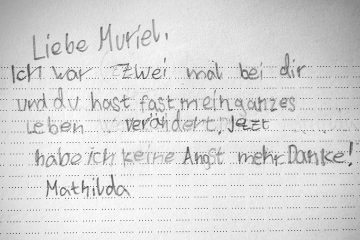 Liebe Muriel.
Ich war zwei mal bei dir
und du hast fast mein ganzes
Leben verändert, Jezt
habe ich keine Angst mehr Danke!
Mathilda